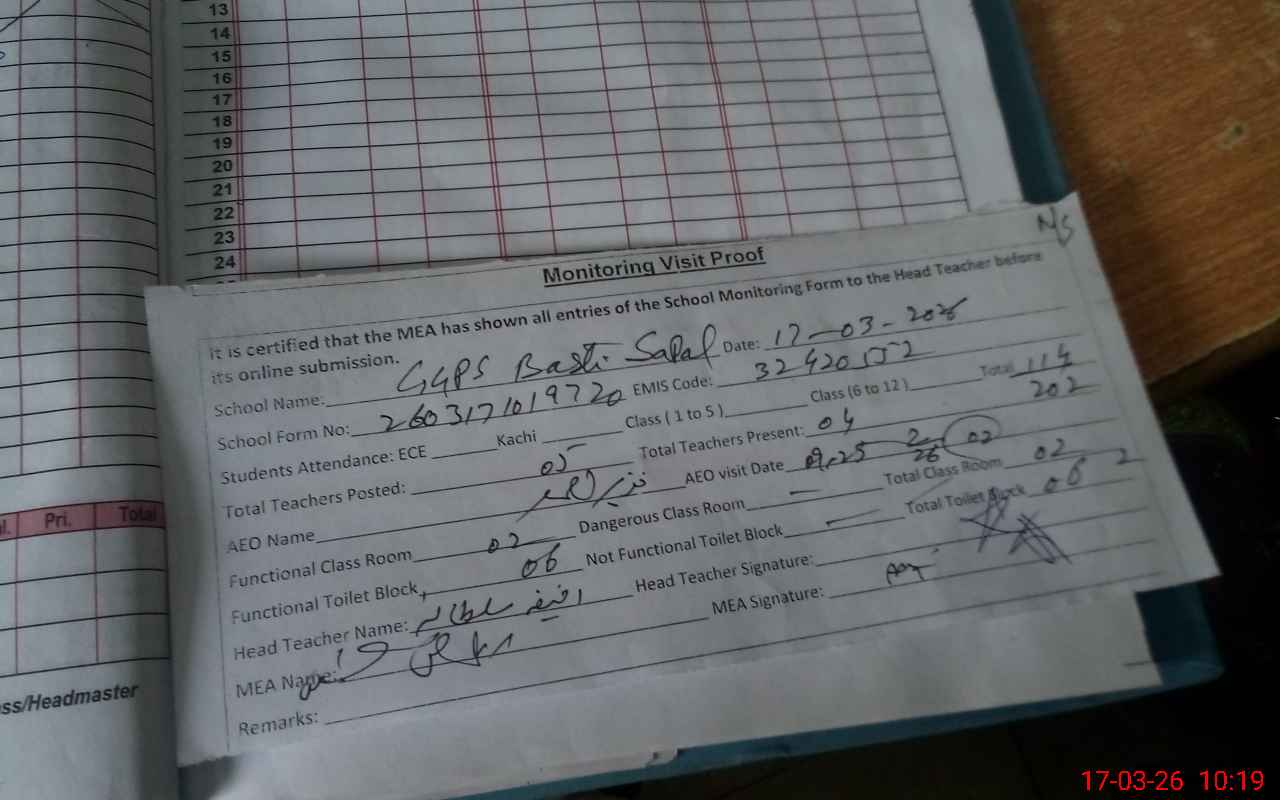 13
14
15
16
17
18
19
20
21
22
23
24
Pri. Total
ss/Headmaster
NS
Monitoring Visit Proof
It is certified that the MEA has shown all entries of the School Monitoring Form to the Head Teacher before
its online submission.
School Name: GGPS Basti Date: 17-03-2026
School Form No: 2603171019720 EMIS Code: 32420552
Students Attendance: ECE Kachi Class ( 1 to 5 ) Class (6 to 12 ) Total 114
202
Total Teachers Posted: 05 Total Teachers Present: 04
AEO Name AEO visit Date 02
Functional Class Room 02 Dangerous Class Room — Total Class Room 02
Functional Toilet Block, 06 Not Functional Toilet Block — Total Toilet Block 06
Head Teacher Name: Head Teacher Signature:
MEA Name: MEA Signature:
Remarks:
17-03-26 10:19